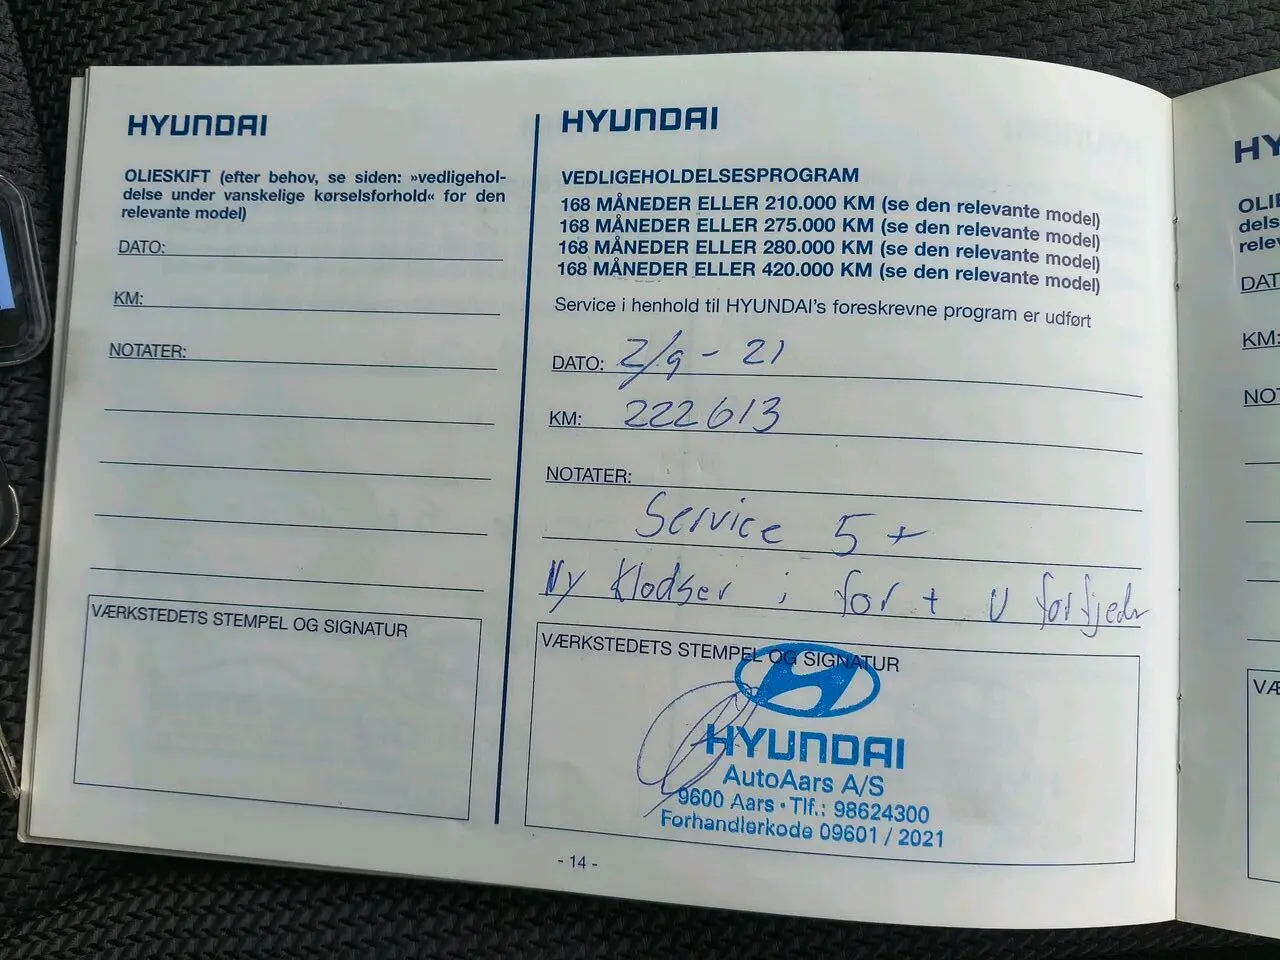 HYUNDAI
OLIESKIFT (efter behov, se siden: »vedligehol-
delse under vanskelige kørselsforhold« for den
relevante model)
DATO:
KM:
NOTATER:
VÆRKSTEDETS STEMPEL OG SIGNATUR
HYUNDAI
VEDLIGEHOLDELSESPROGRAM
168 MÅNEDER ELLER 210.000 KM (se den relevante model)
168 MÅNEDER ELLER 275.000 KM (se den relevante model)
168 MÅNEDER ELLER 280.000 KM (se den relevante model)
168 MÅNEDER ELLER 420.000 KM (se den relevante model)
Service i henhold til HYUNDAI's foreskrevne program er udført
DATO: 2/9 - 21
KM: 222613
NOTATER:
Service 5 +
Ny Klodser i for + U forfjedr
VÆRKSTEDETS STEMPEL OG SIGNATUR
HYUNDAI
AutoAars A/S
9600 Aars • Tlf.: 98624300
Forhandlerkode 09601 / 2021
- 14 -
HY
OLIE
dels
rele
DAT
KM:
NO
VÆ